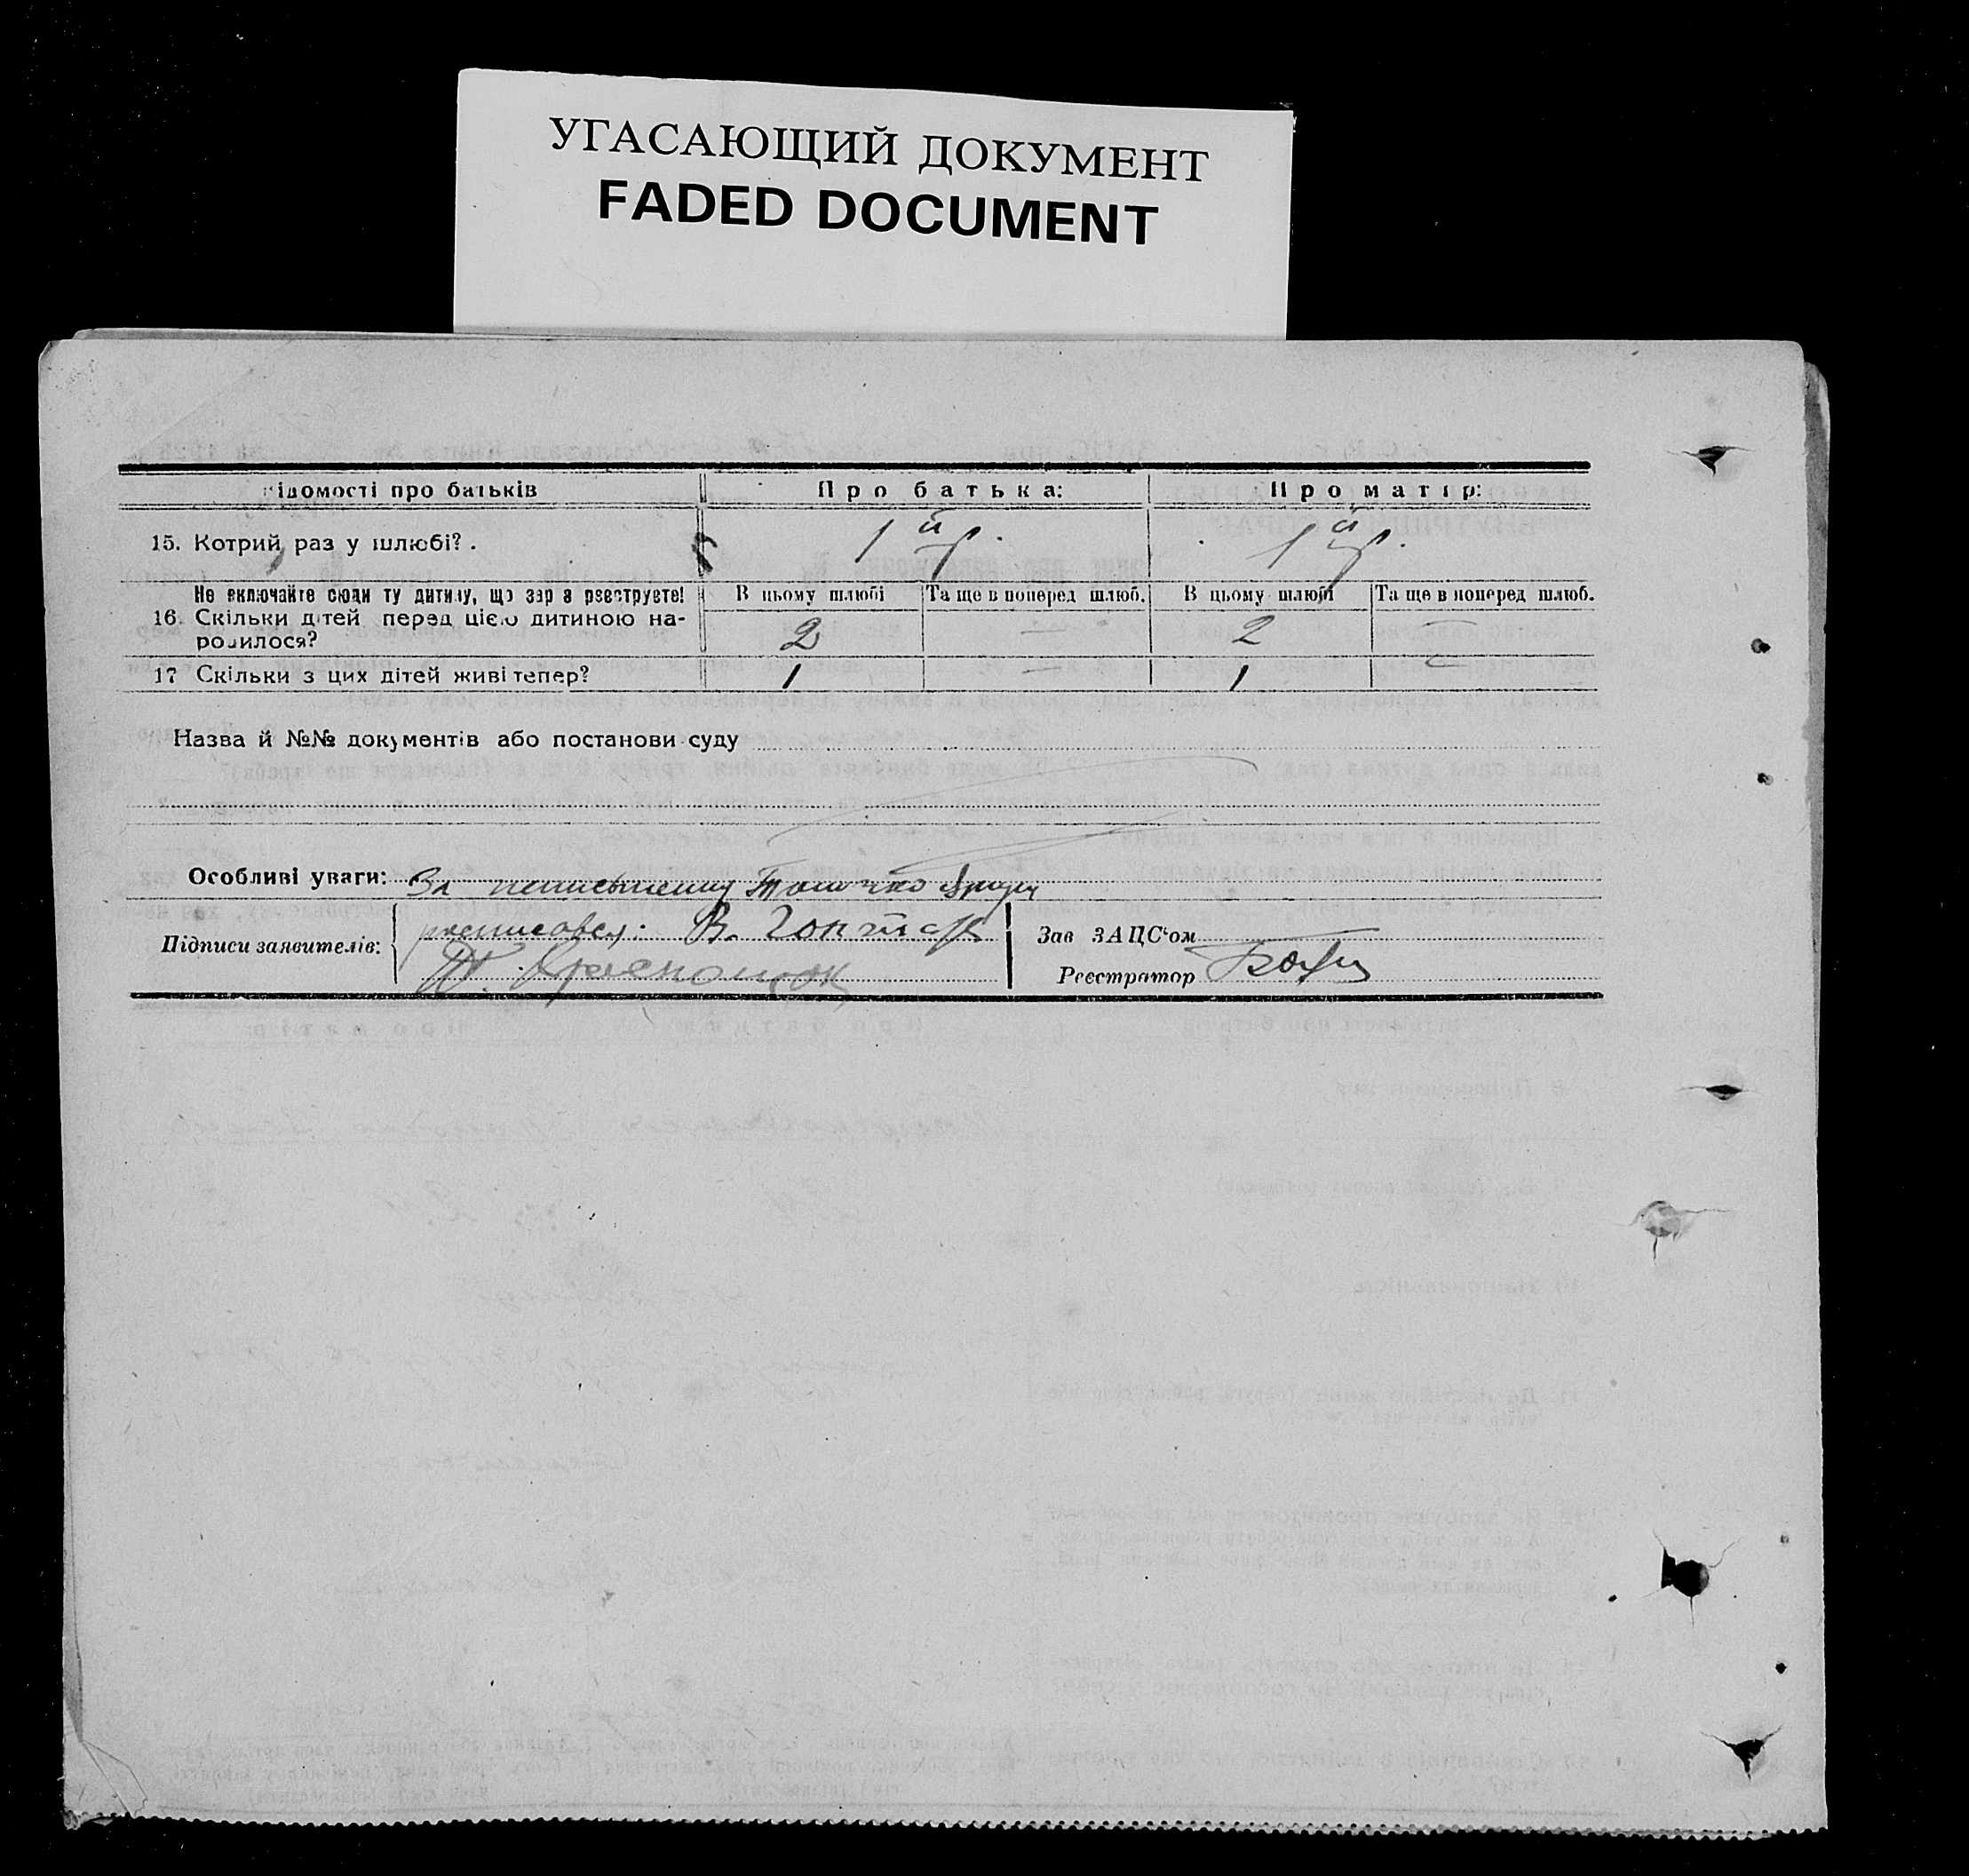 УГАСАЮЩИЙ ДОКУМЕНТ
FADED DOCUMENT
ідомості про батьків Про батька: Про матір:
15. Котрий раз у шлюбі? . 1й р. 1й р.
Не включайте сюди ту дитину, що зараз реєструєте! В цьому шлюбі Та ще в поперед шлюб. В цьому шлюбі Та ще в поперед шлюб.
16. Скільки дітей перед цією дитиною на-
родилося? 2 — 2 —
17 Скільки з цих дітей живі тепер? 1 — 1 —
Назва й №№ документів або постанови суду
Особливі уваги: За неписьменну
Підписи заявителів: росписовсь: В. Гонтар
Зав ЗАЦС'ом
Реєстратор